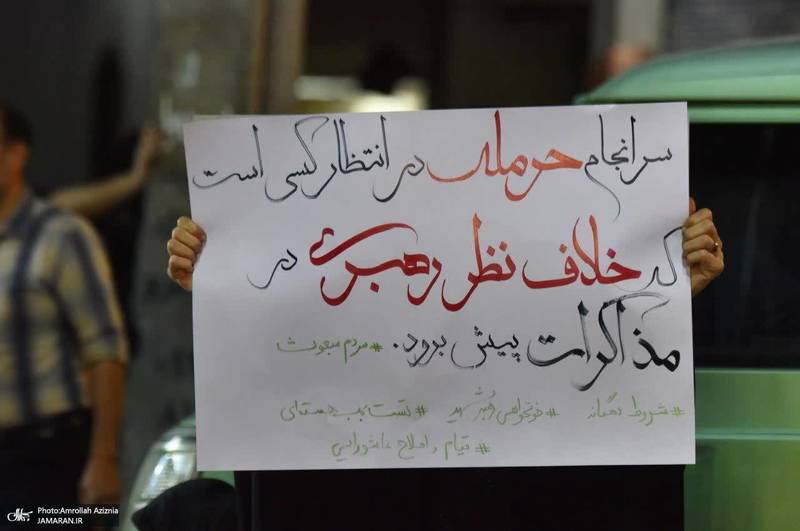 سرانجام حرمله در انتظار کسی است
که خلاف نظر رهبری در
مذاکرات پیش برود. #مردم مبعوث
#شروط دهگانه #خونخواهی رهبر شهید #تست بمب هسته‌ای
#قیام و اصلاح عاشورایی
Photo:Amrollah Aziznia
JAMARAN.IR